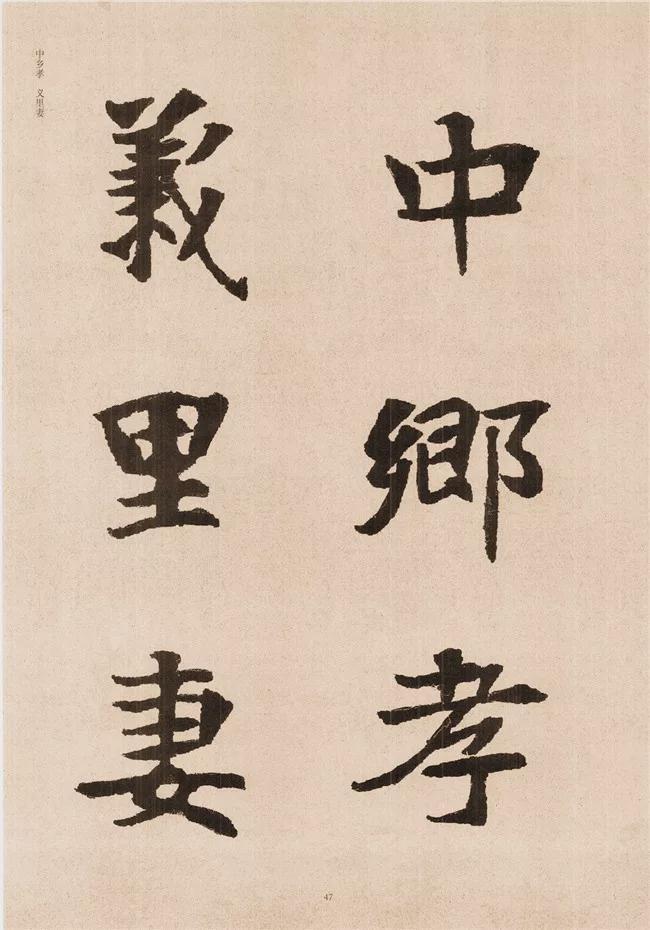 中鄉孝
義里妻
中乡孝 义里妻
47